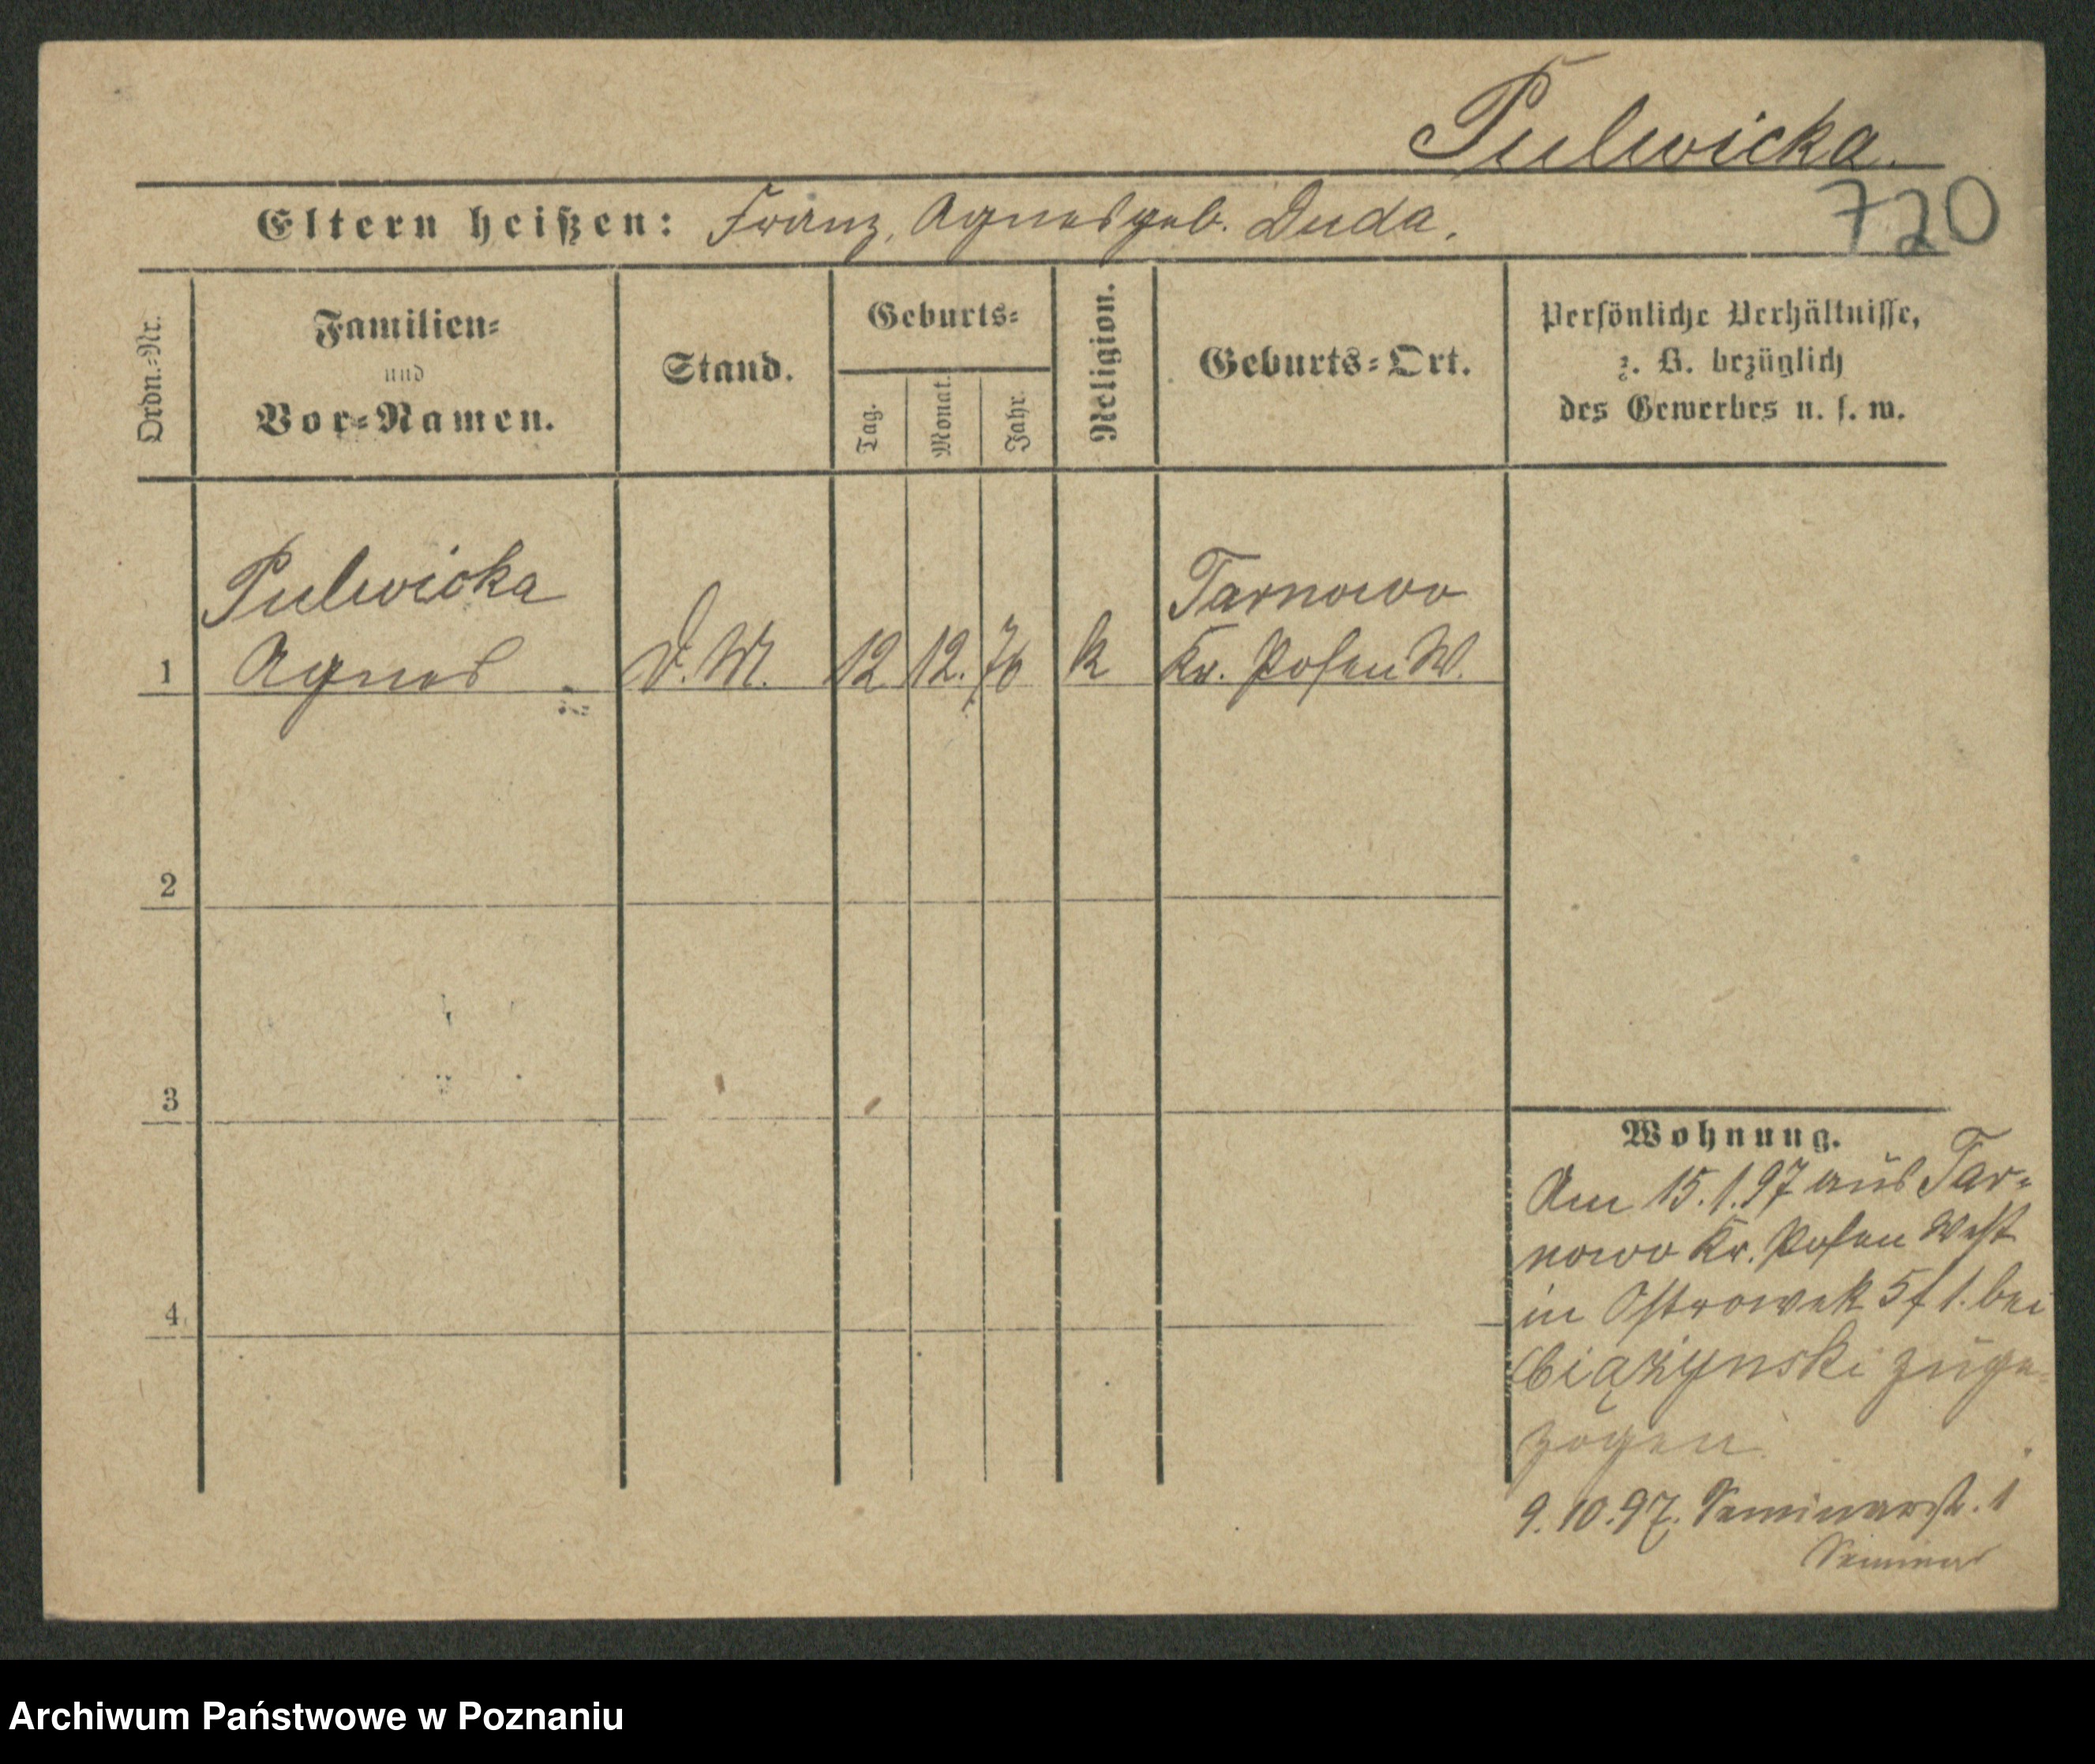 Pulwicka.
720
Eltern heißen: Franz, Agnes geb. Duda.
Ordn.-Nr.
Familien-
und
Vor-Namen.
Stand.
Geburts-
Tag.
Monat.
Jahr.
Religion.
Geburts-Ort.
Persönliche Verhältnisse,
z. B. bezüglich
des Gewerbes u. s. w.
Pulwicka
Agnes
1
D. M.
12
12.
76
k
Tarnowo
Kr. Posen W.
2
3
4
Wohnung.
Am 15.1.97 aus Tar-
nowo Kr. Posen West
in Ostrowek 5 f 1. bei
Ciążynski zuge-
zogen
9.10.97. Seminarstr. 1
Seminar
Archiwum Państwowe w Poznaniu